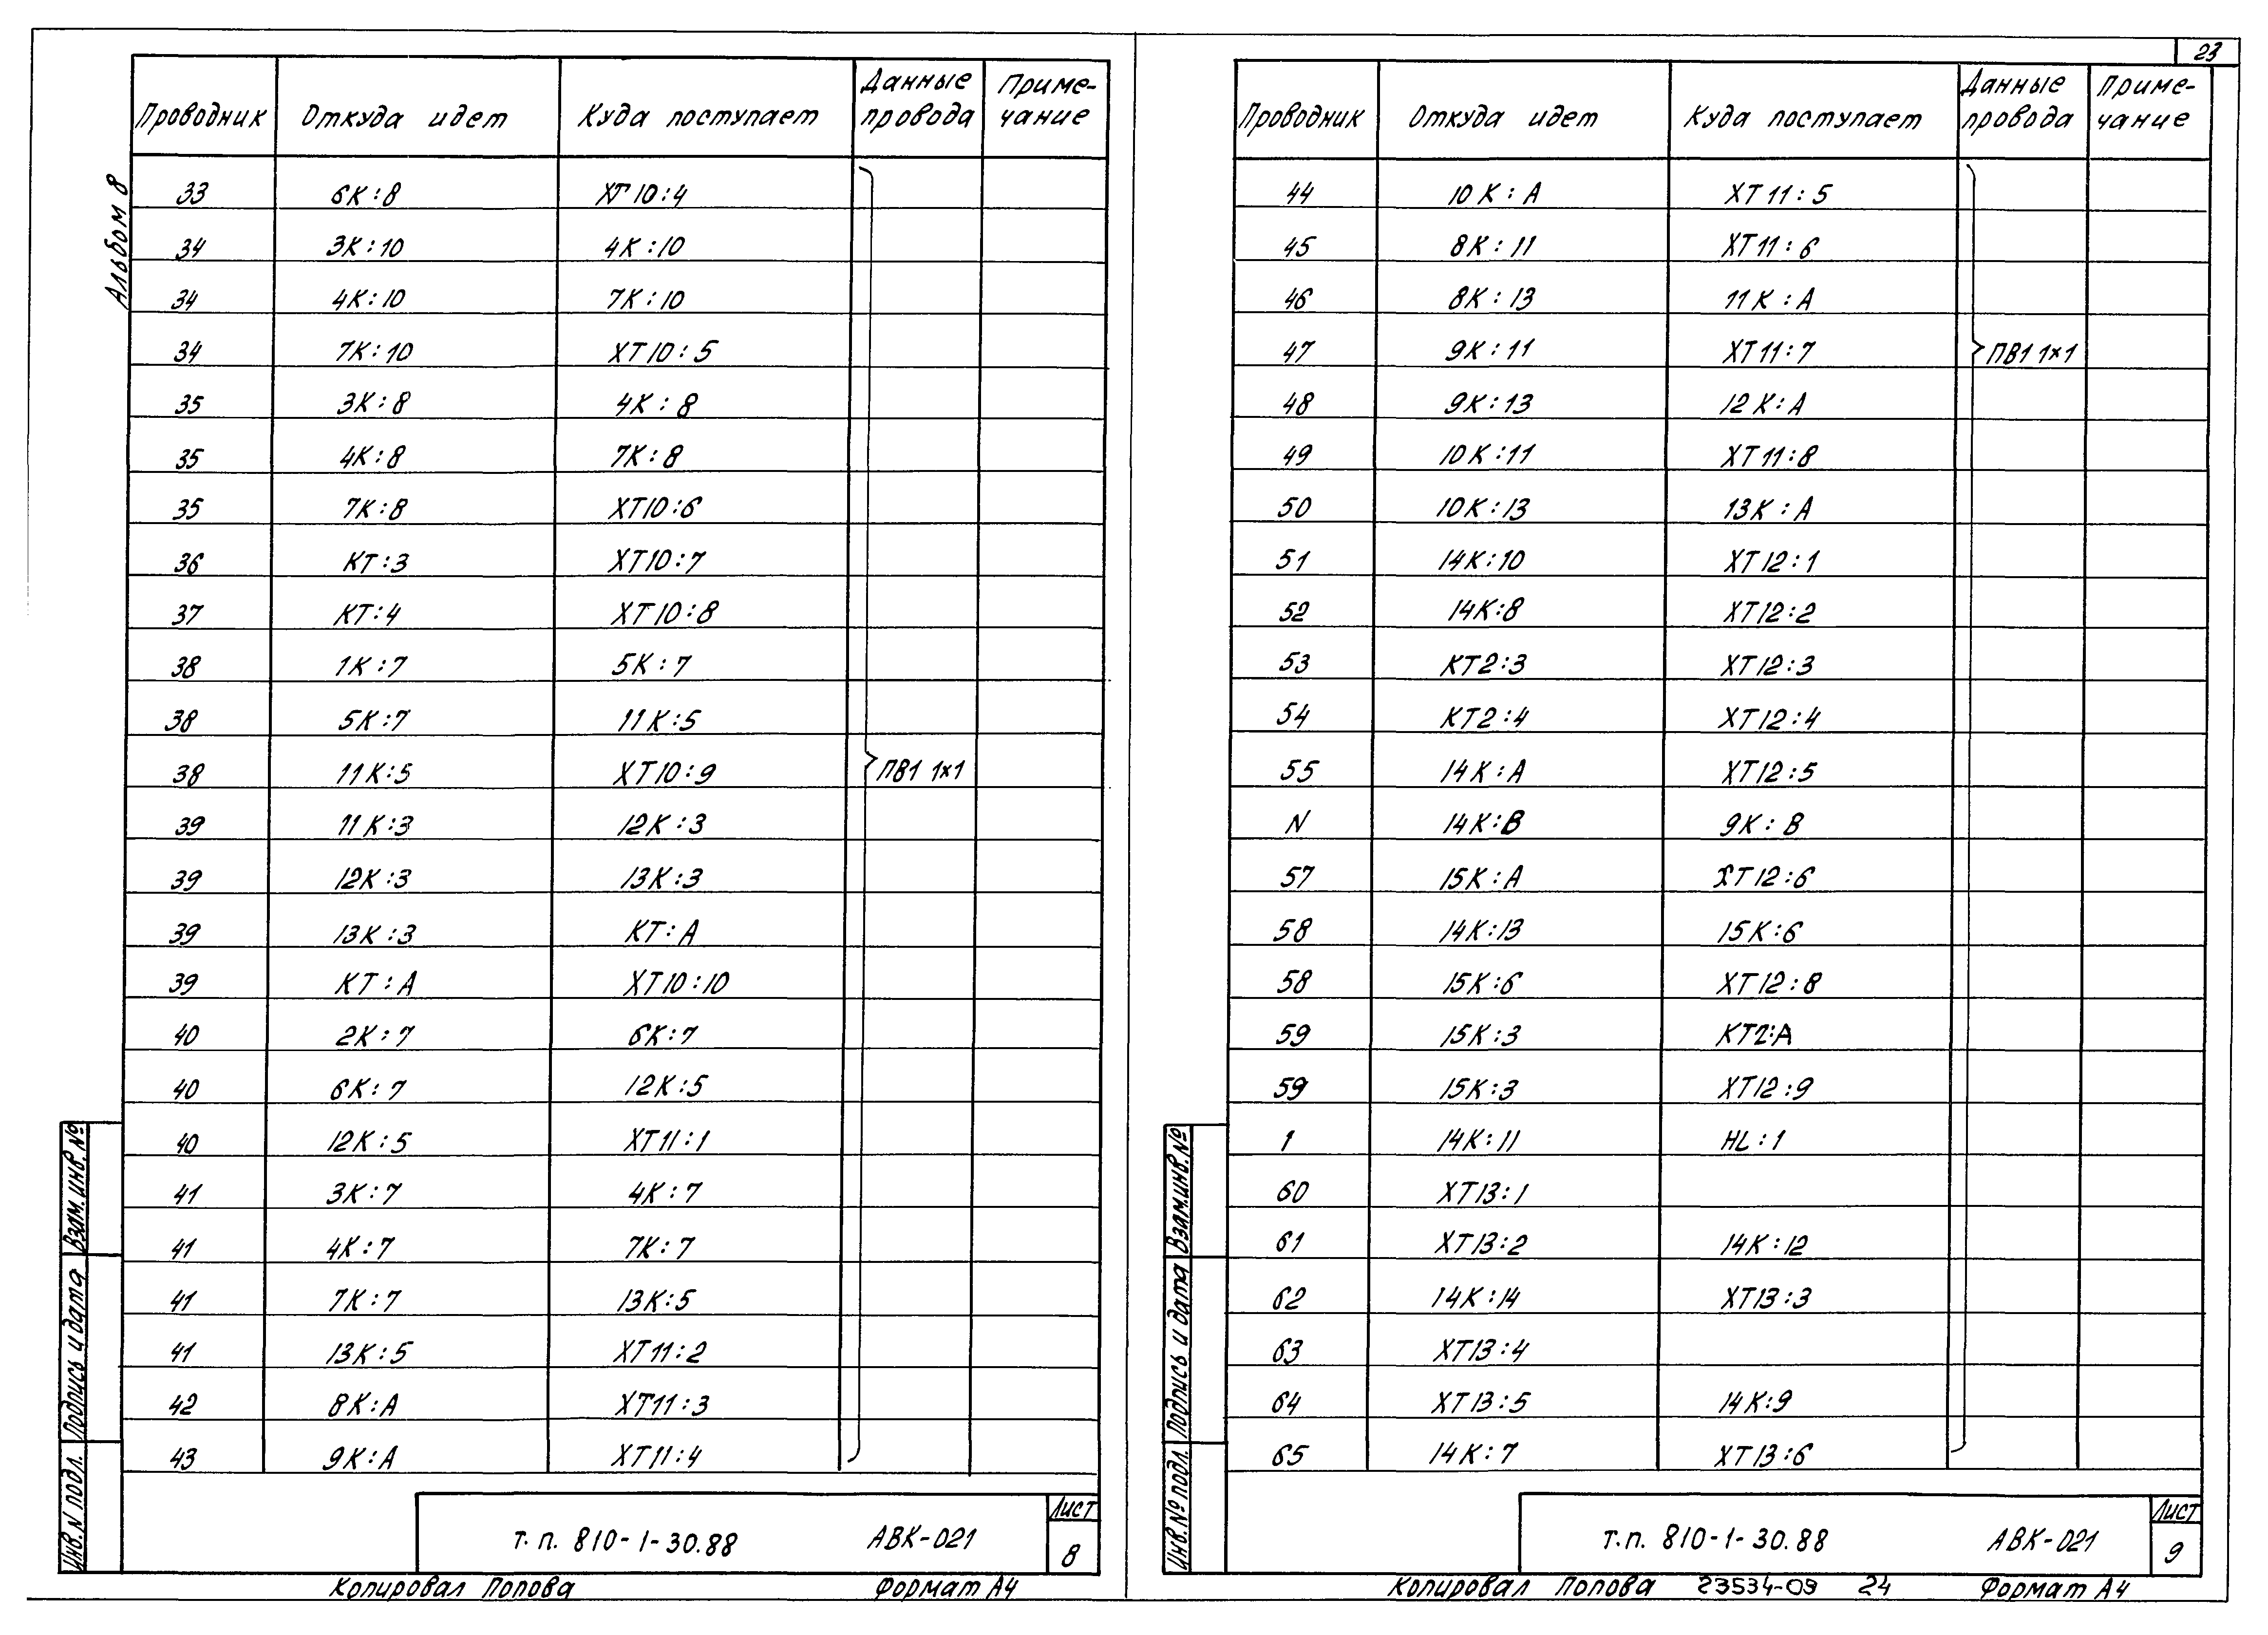 23
Альбом 8
Проводник Откуда идет Куда поступает Данные провода Приме-чание
33 6К:8 ХТ10:4
34 3К:10 4К:10
34 4К:10 7К:10
34 7К:10 ХТ10:5
35 3К:8 4К:8
35 4К:8 7К:8
35 7К:8 ХТ10:6
36 КТ:3 ХТ10:7
37 КТ:4 ХТ10:8
38 1К:7 5К:7
38 5К:7 11К:5
38 11К:5 ХТ10:9 ПВ1 1×1
39 11К:3 12К:3
39 12К:3 13К:3
39 13К:3 КТ:А
39 КТ:А ХТ10:10
40 2К:7 6К:7
40 6К:7 12К:5
40 12К:5 ХТ11:1
41 3К:7 4К:7
41 4К:7 7К:7
41 7К:7 13К:5
41 13К:5 ХТ11:2
42 8К:А ХТ11:3
43 9К:А ХТ11:4
Взам.инв.№
Подпись и дата
Инв.N подл.
т.п. 810-1-30.88 АВК-021
Лист
8
Копировал Попова Формат А4
Проводник Откуда идет Куда поступает Данные провода Приме-чание
44 10К:А ХТ11:5
45 8К:11 ХТ11:6
46 8К:13 11К:А
47 9К:11 ХТ11:7 ПВ1 1×1
48 9К:13 12К:А
49 10К:11 ХТ11:8
50 10К:13 13К:А
51 14К:10 ХТ12:1
52 14К:8 ХТ12:2
53 КТ2:3 ХТ12:3
54 КТ2:4 ХТ12:4
55 14К:А ХТ12:5
N 14К:В 9К:В
57 15К:А ХТ12:6
58 14К:13 15К:6
58 15К:6 ХТ12:8
59 15К:3 КТ2:А
59 15К:3 ХТ12:9
1 14К:11 HL:1
60 ХТ13:1
61 ХТ13:2 14К:12
62 14К:14 ХТ13:3
63 ХТ13:4
64 ХТ13:5 14К:9
65 14К:7 ХТ13:6
Взам.инв.№
Подпись и дата
Инв.№ подл.
т.п. 810-1-30.88 АВК-021
Лист
9
Копировал Попова 23534-09 24 Формат А4